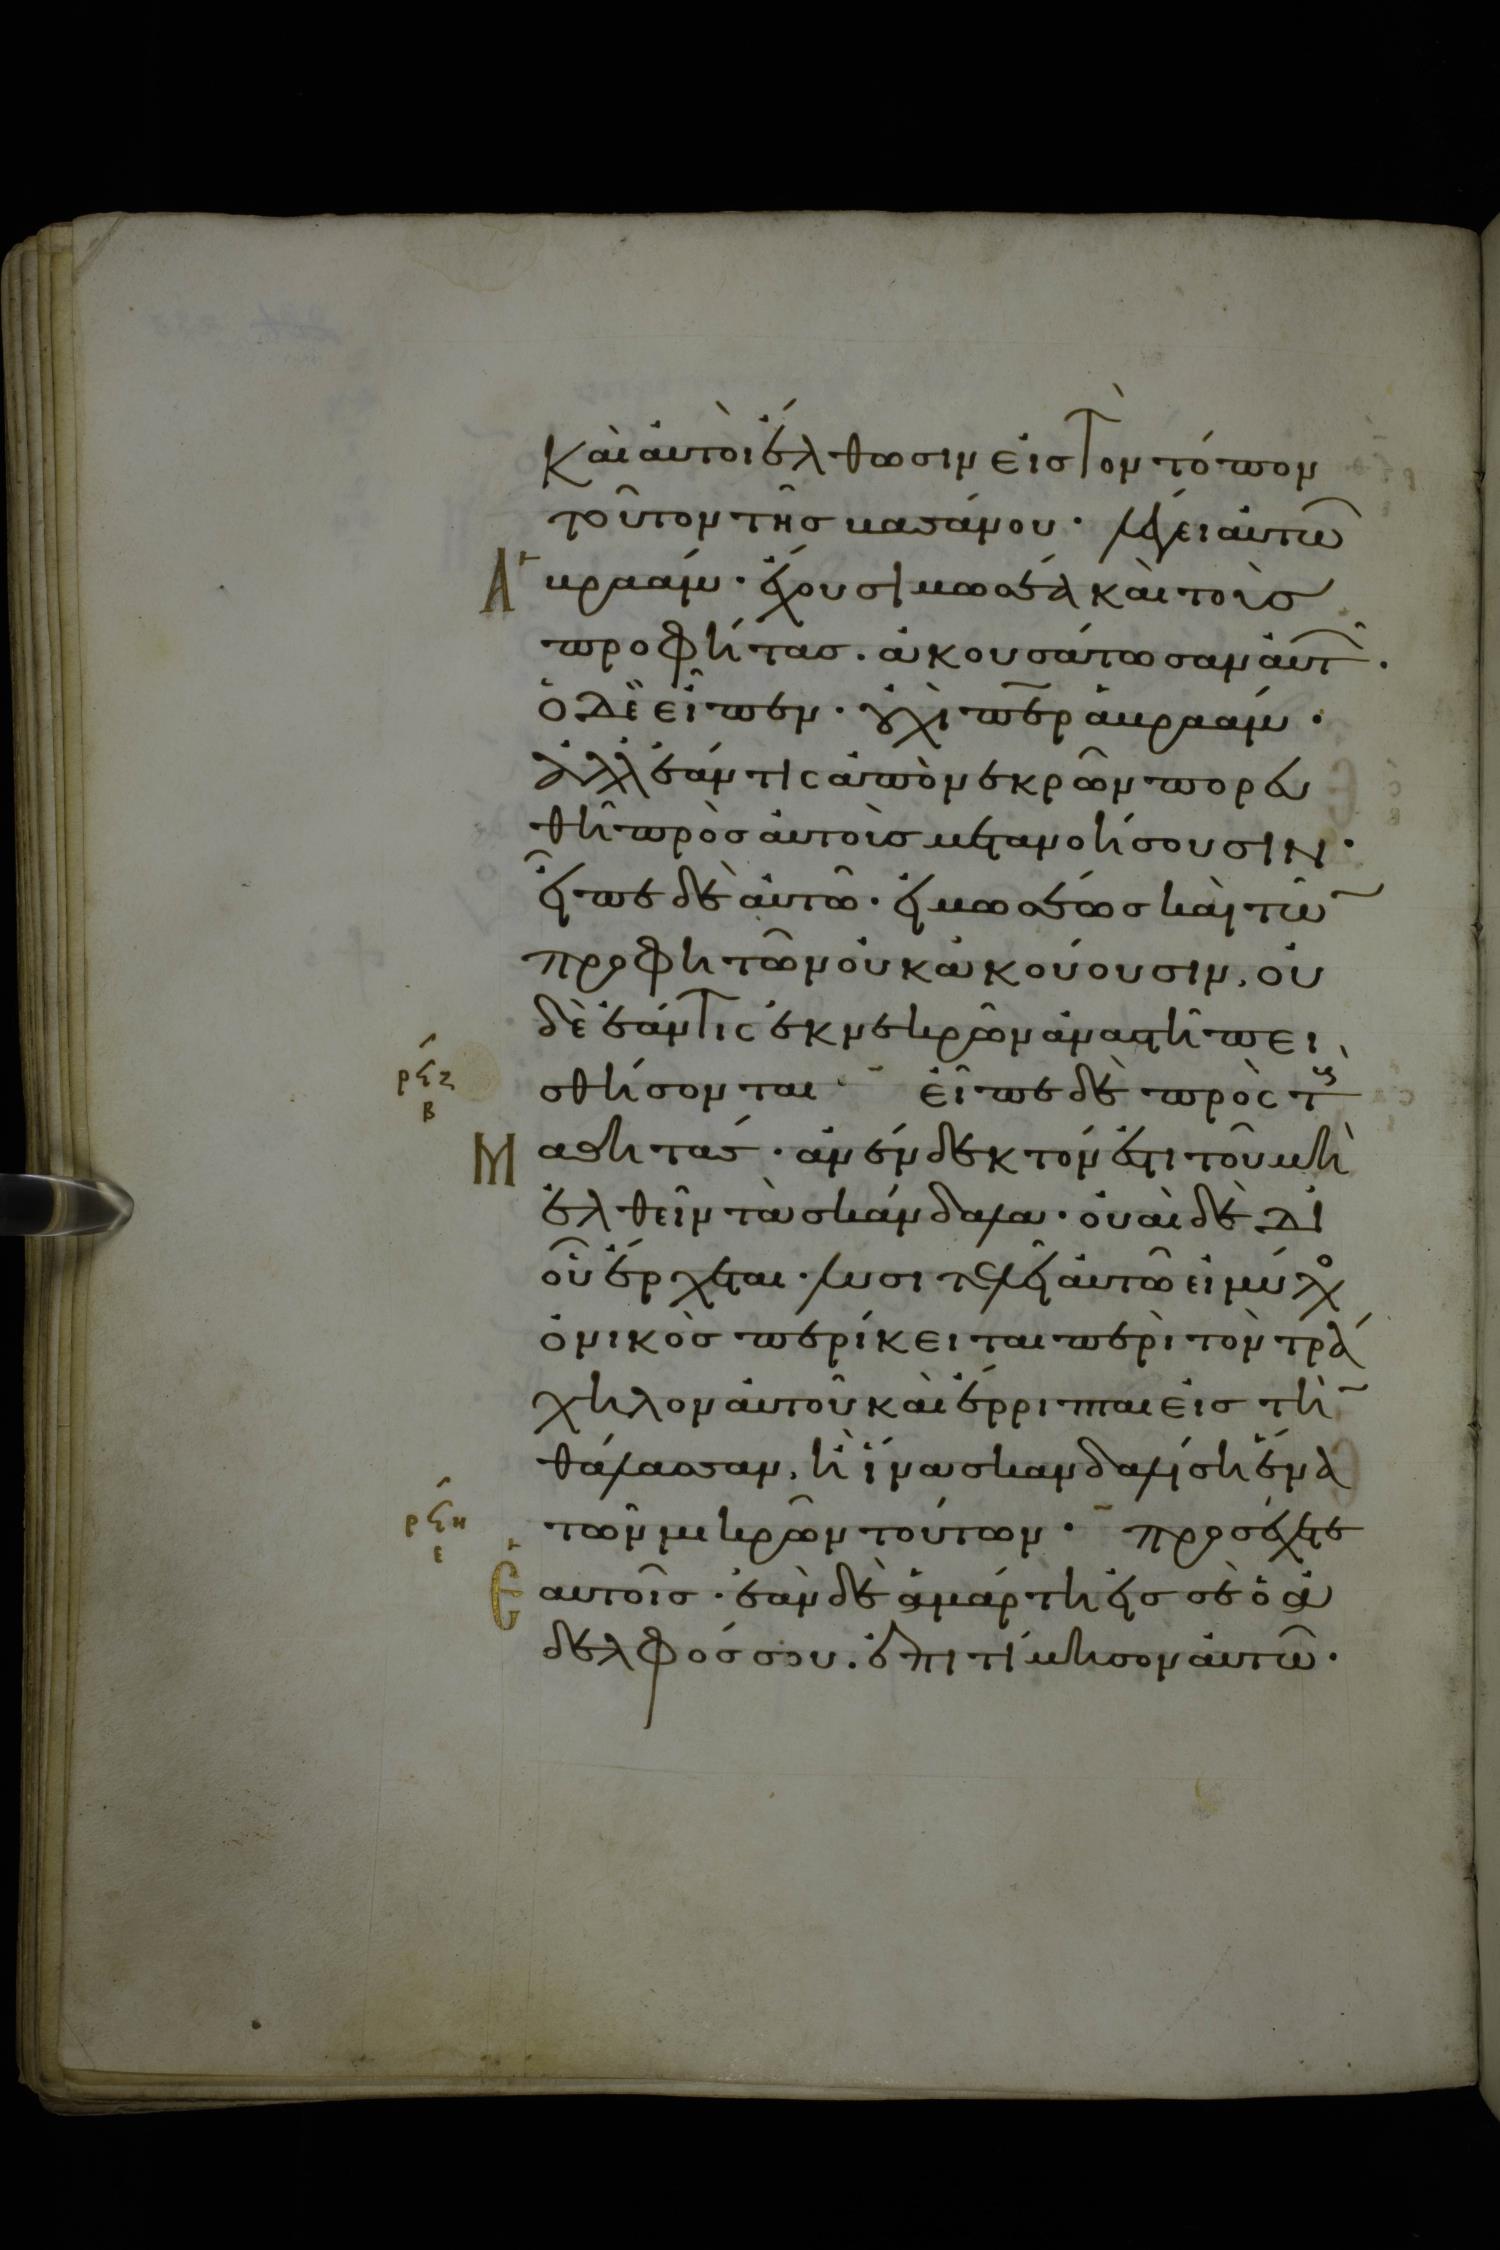 καὶ αὐτοὶ ἔλθωσιν εἰς τὸν τόπον
τοῦτον τῆς βασάνου · λέγει αὐτῶ
Ἀβραάμ · ἔχουσι μωσέα καὶ τοὺς
προφήτας · ἀκουσάτωσαν αὐτ ·
ὁ δὲ εἶπεν · οὐχὶ περ ἀβραάμ ·
ἀλλ ἐάν τις ἀπὸ νεκρῶν πορευ
θῆ πρὸς αὐτοὺς μετανοήσουσιν ·
εἶπε δὲ αὐτῶ · εἰ μωσέως καὶ τῶ
προφητῶν οὐκ ἀκούουσιν, οὐ
δὲ ἐάν τις ἐκ νεκρῶν ἀναστῆ πει
ρϟζ β
σθήσονται εἶπε δὲ πρὸς τ
Μαθητάς · ἀνένδεκτόν ἐστι τοῦ μὴ
ἐλθεῖν τὰ σκάνδαλα · οὐαὶ δὲ δι
οὗ ἔρχεται · λυσιτελεῖ αὐτῶ εἰ μύλο
ὀνικὸς περίκειται περὶ τὸν τρά
χηλον αὐτοῦ καὶ ἔρριπται εἰς τὴ
θάλασσαν, ἢ ἵνα σκανδαλίση ἕνα
ρϟη ε
τῶν μικρῶν τούτων · προσέχετε
Ἑαυτοῖς · ἐὰν δὲ ἁμάρτη εἰς σὲ ὁ ἀ
δελφός σου · ἐπιτίμησον αὐτῶ ·